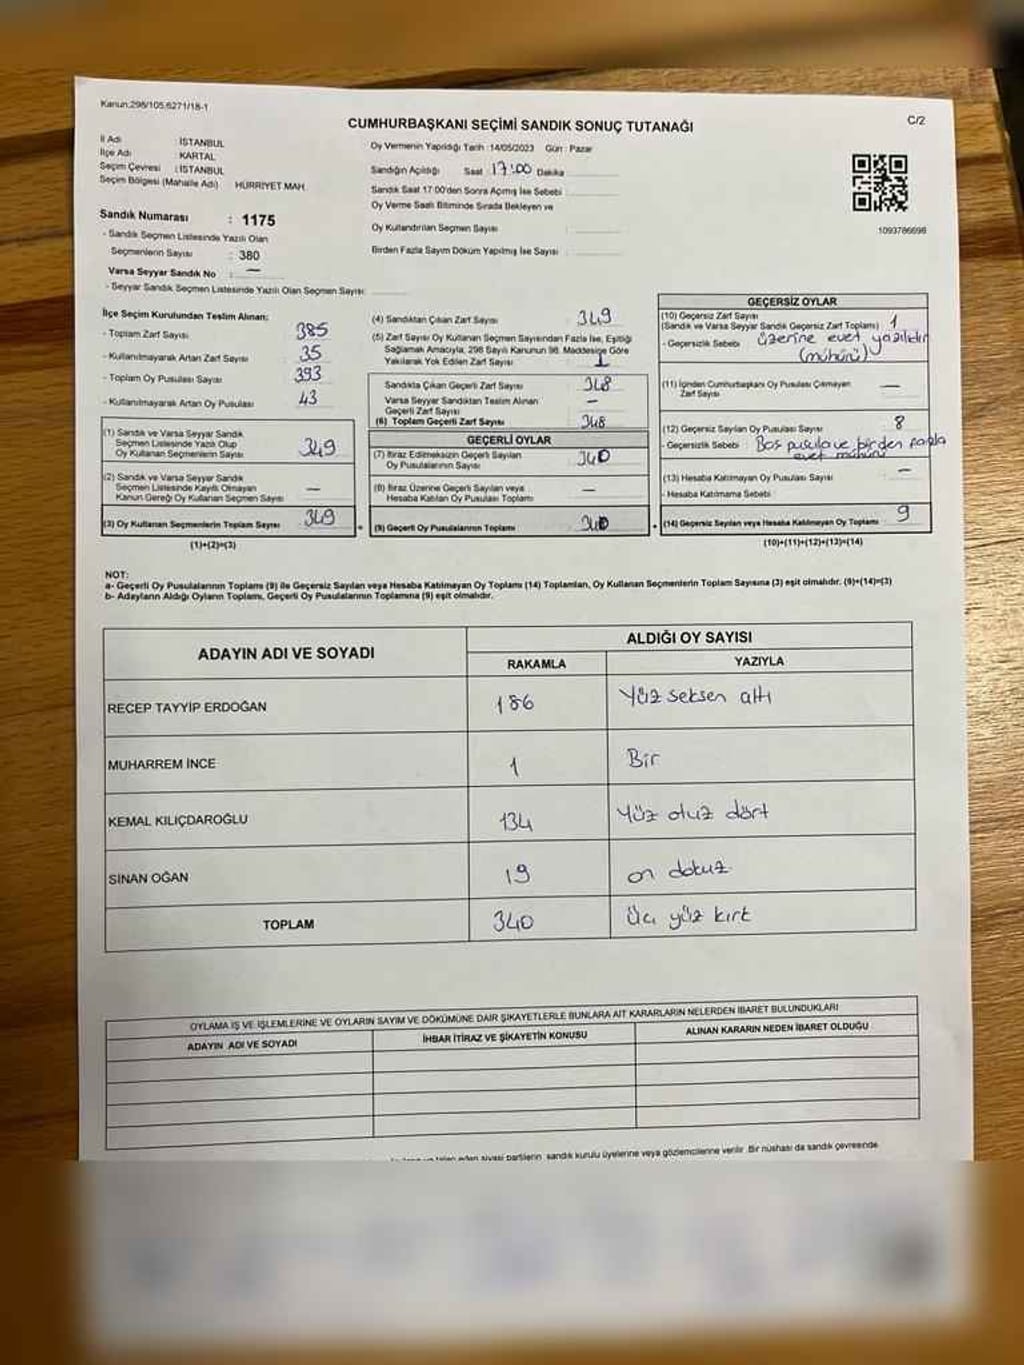 Kanun:298/105,6271/18-1
C/2
CUMHURBAŞKANI SEÇİMİ SANDIK SONUÇ TUTANAĞI
İl Adı : İSTANBUL
İlçe Adı : KARTAL
Seçim Çevresi : İSTANBUL
Seçim Bölgesi (Mahalle Adı) HÜRRİYET MAH.
Sandık Numarası : 1175
- Sandık Seçmen Listesinde Yazılı Olan
Seçmenlerin Sayısı : 380
Varsa Seyyar Sandık No : —
- Seyyar Sandık Seçmen Listesinde Yazılı Olan Seçmen Sayısı:
Oy Vermenin Yapıldığı Tarih : 14/05/2023 Gün : Pazar
Sandığın Açıldığı Saat 17:00 Dakika
Sandık Saat 17:00'den Sonra Açmış İse Sebebi
Oy Verme Saati Bitiminde Sırada Bekleyen ve
Oy Kullandırılan Seçmen Sayısı :
Birden Fazla Sayım Döküm Yapılmış İse Sayısı :
1093786698
İlçe Seçim Kurulundan Teslim Alınan:
- Toplam Zarf Sayısı 385
- Kullanılmayarak Artan Zarf Sayısı 35
- Toplam Oy Pusulası Sayısı 393
- Kullanılmayarak Artan Oy Pusulası 43
(1) Sandık ve Varsa Seyyar Sandık
Seçmen Listesinde Yazılı Olup
Oy Kullanan Seçmenlerin Sayısı 349
(2) Sandık ve Varsa Seyyar Sandık
Seçmen Listesinde Kayıtlı Olmayan
Kanun Gereği Oy Kullanan Seçmen Sayısı —
(3) Oy Kullanan Seçmenlerin Toplam Sayısı 349
(1)+(2)=(3)
(4) Sandıktan Çıkan Zarf Sayısı 349
(5) Zarf Sayısı Oy Kullanan Seçmen Sayısından Fazla İse, Eşitliği
Sağlamak Amacıyla, 298 Sayılı Kanunun 98. Maddesine Göre
Yakılarak Yok Edilen Zarf Sayısı
Sandıkta Çıkan Geçerli Zarf Sayısı 348
Varsa Seyyar Sandıktan Teslim Alınan
Geçerli Zarf Sayısı —
(6) Toplam Geçerli Zarf Sayısı 348
GEÇERLİ OYLAR
(7) İtiraz Edilmeksizin Geçerli Sayılan
Oy Pusulalarının Sayısı 340
(8) İtiraz Üzerine Geçerli Sayılan veya
Hesaba Katılan Oy Pusulası Toplamı —
(9) Geçerli Oy Pusulalarının Toplamı 340
GEÇERSİZ OYLAR
(10) Geçersiz Zarf Sayısı
(Sandık ve Varsa Seyyar Sandık Geçersiz Zarf Toplamı) 1
- Geçersizlik Sebebi : üzerine evet yazılıdır
(mühürü)
(11) İçinden Cumhurbaşkanı Oy Pusulası Çıkmayan
Zarf Sayısı —
(12) Geçersiz Sayılan Oy Pusulası Sayısı 8
- Geçersizlik Sebebi : Boş pusula ve birden fazla
evet mühürü
(13) Hesaba Katılmayan Oy Pusulası Sayısı —
- Hesaba Katılmama Sebebi :
(14) Geçersiz Sayılan veya Hesaba Katılmayan Oy Toplamı 9
(10)+(11)+(12)+(13)=(14)
NOT:
a- Geçerli Oy Pusulalarının Toplamı (9) ile Geçersiz Sayılan veya Hesaba Katılmayan Oy Toplamı (14) Toplamları, Oy Kullanan Seçmenlerin Toplam Sayısına (3) eşit olmalıdır. (9)+(14)=(3)
b- Adayların Aldığı Oyların Toplamı, Geçerli Oy Pusulalarının Toplamına (9) eşit olmalıdır.
ADAYIN ADI VE SOYADI ALDIĞI OY SAYISI
RAKAMLA YAZIYLA
RECEP TAYYİP ERDOĞAN 186 Yüz seksen altı
MUHARREM İNCE 1 Bir
KEMAL KILIÇDAROĞLU 134 Yüz otuz dört
SİNAN OĞAN 19 on dokuz
TOPLAM 340 Üç yüz kırk
OYLAMA İŞ VE İŞLEMLERİNE VE OYLARIN SAYIM VE DÖKÜMÜNE DAİR ŞİKAYETLERLE BUNLARA AİT KARARLARIN NELERDEN İBARET BULUNDUKLARI
ADAYIN ADI VE SOYADI İHBAR İTİRAZ VE ŞİKAYETİN KONUSU ALINAN KARARIN NEDEN İBARET OLDUĞU
eden siyasi partilerin, sandık kurulu üyelerine veya gözlemcilerine verilir. Bir nüshası da sandık çevresinde